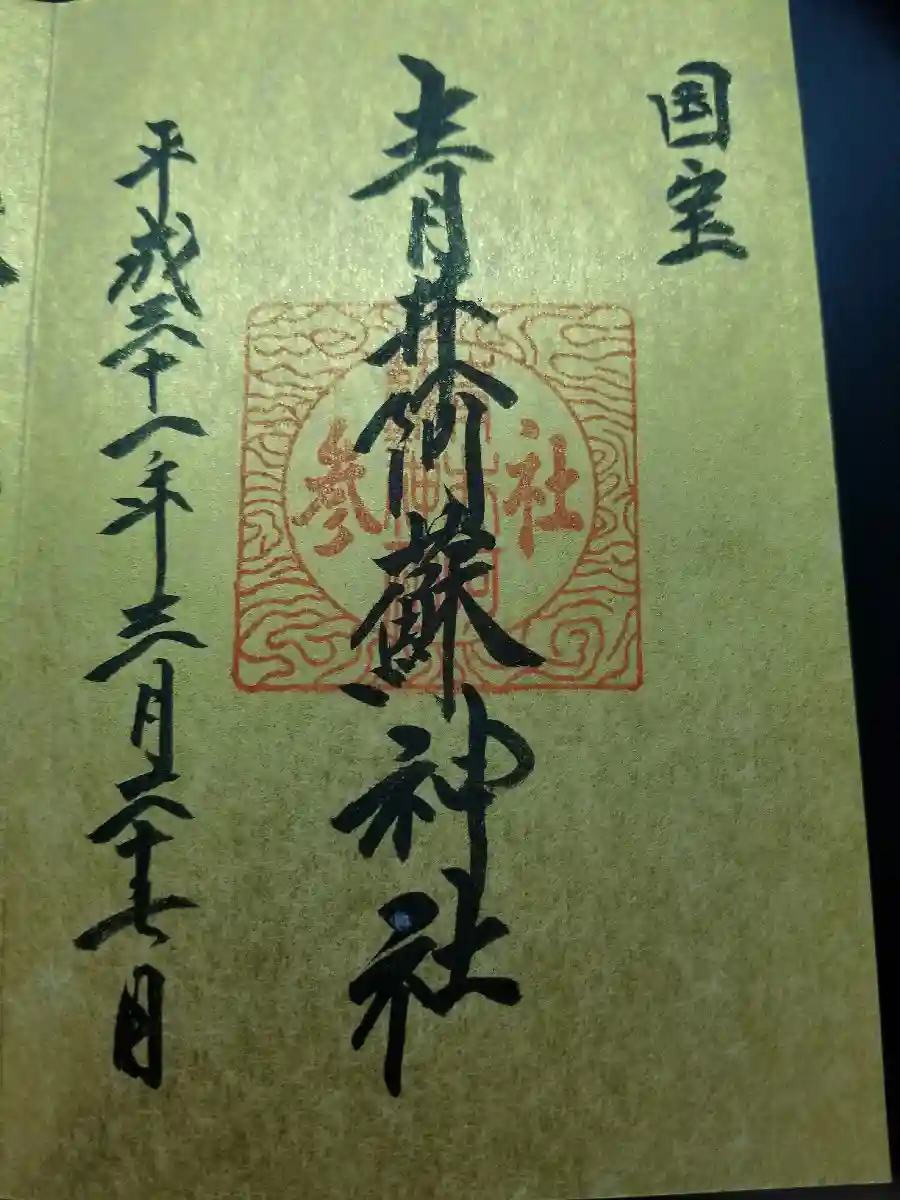 国宝
青井阿蘇神社
参社
平成三十一年三月二十七日